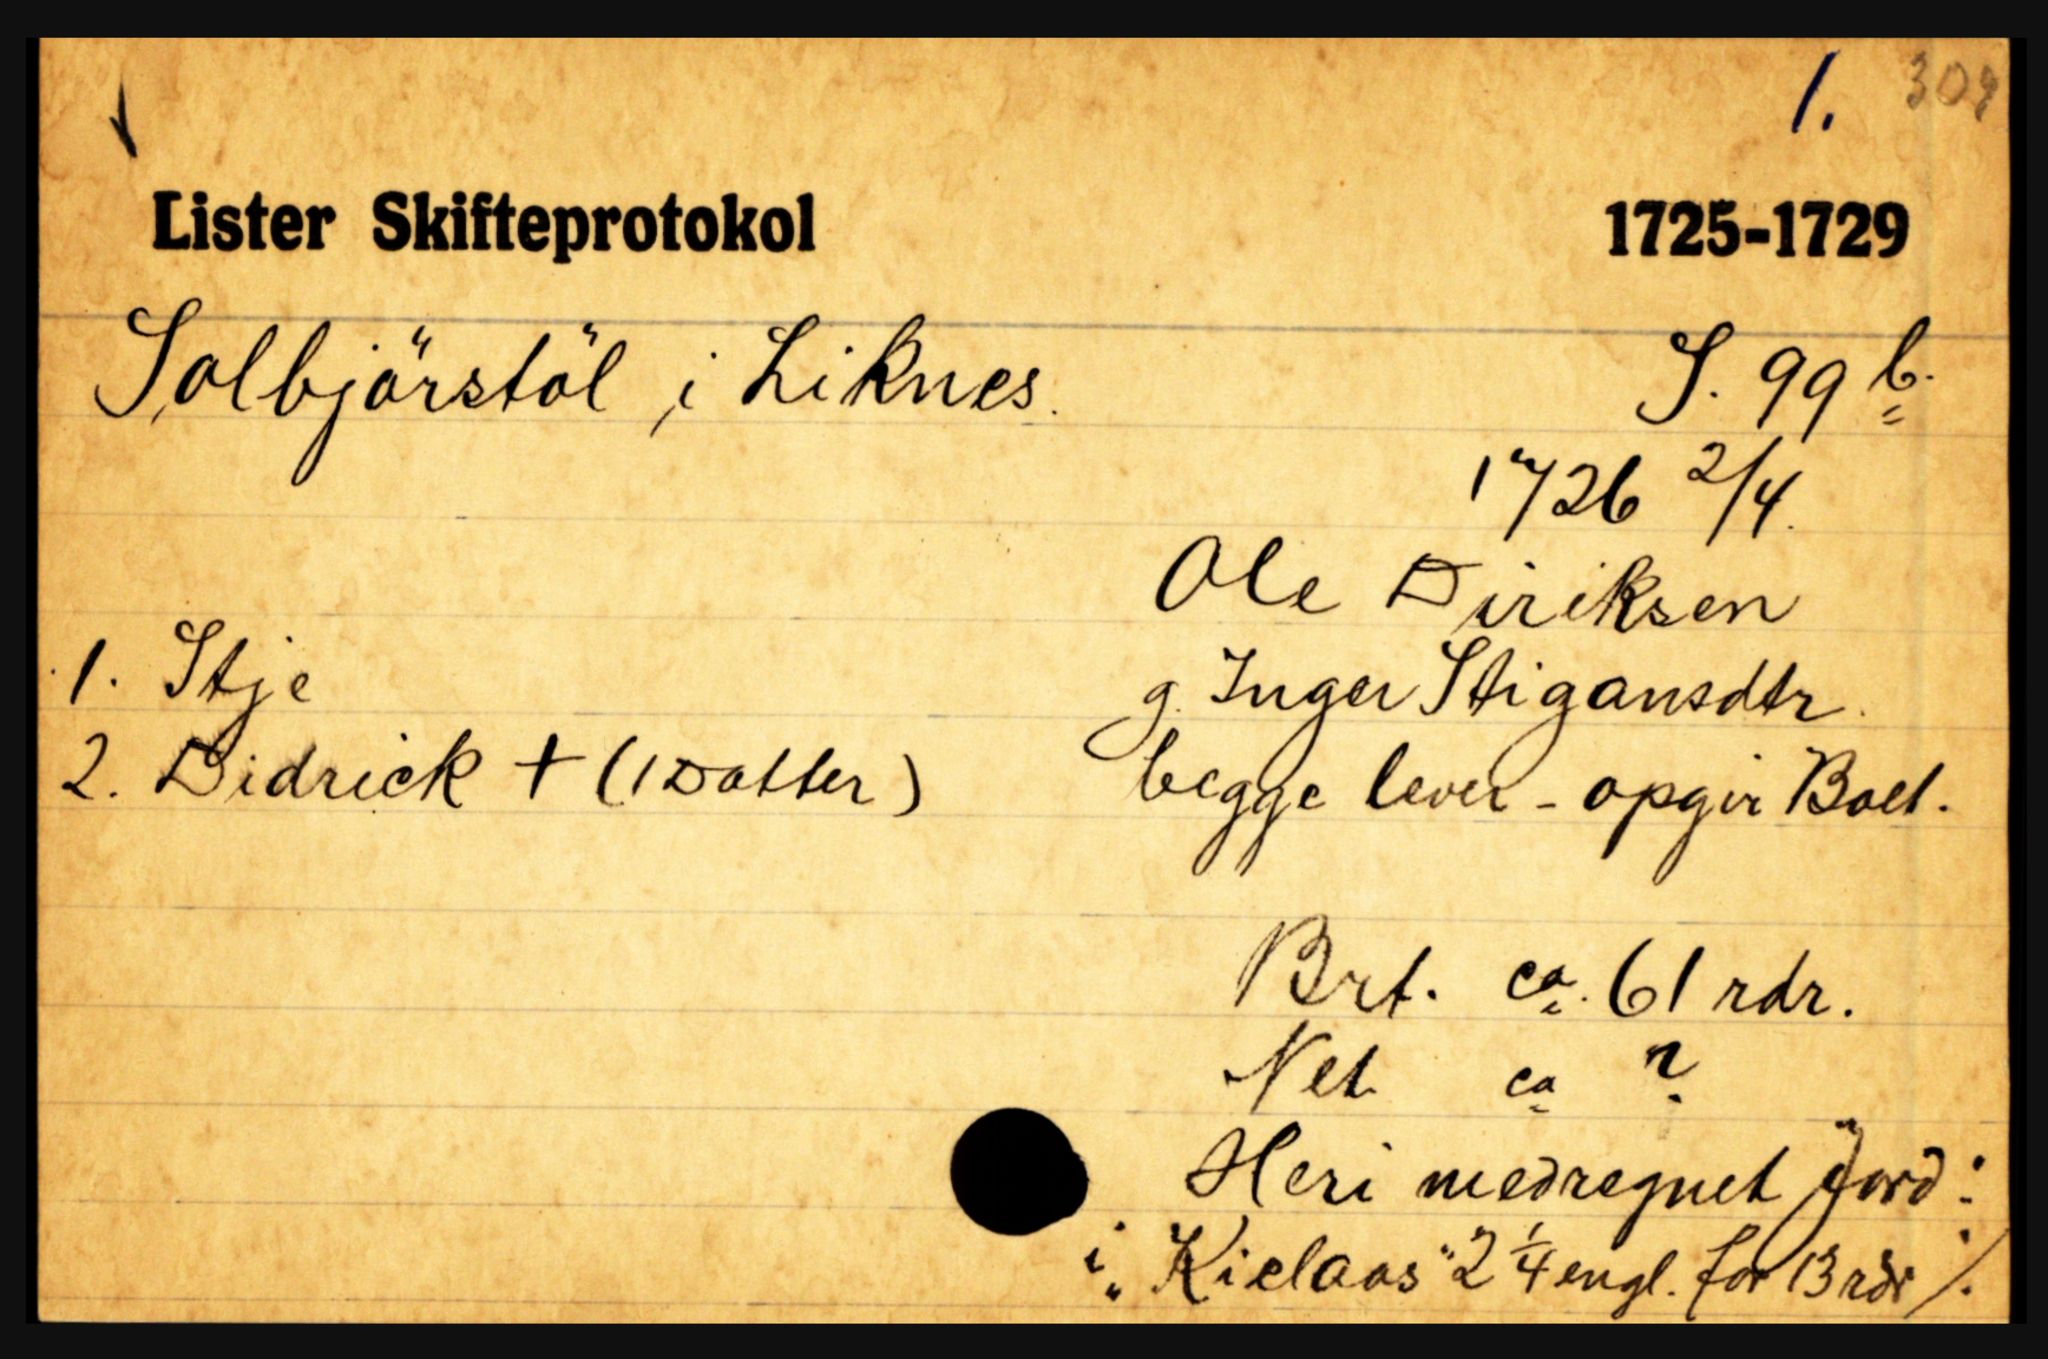 1. 309
Lister Skifteprotokol 1725-1729
Solbjörstöl i Liknes. S. 99 b.
1726 2/4.
Ole Diriksen
1. Stje g. Inger Stigansdtr.
2. Didrick + (1 Datter) begge lever - opgir Boet.
Brt. ca. 61 rdr.
Net ca ?
Heri medregnet Jord:
i „Kielaas" 2 1/4 engl. for 13 rdr /.